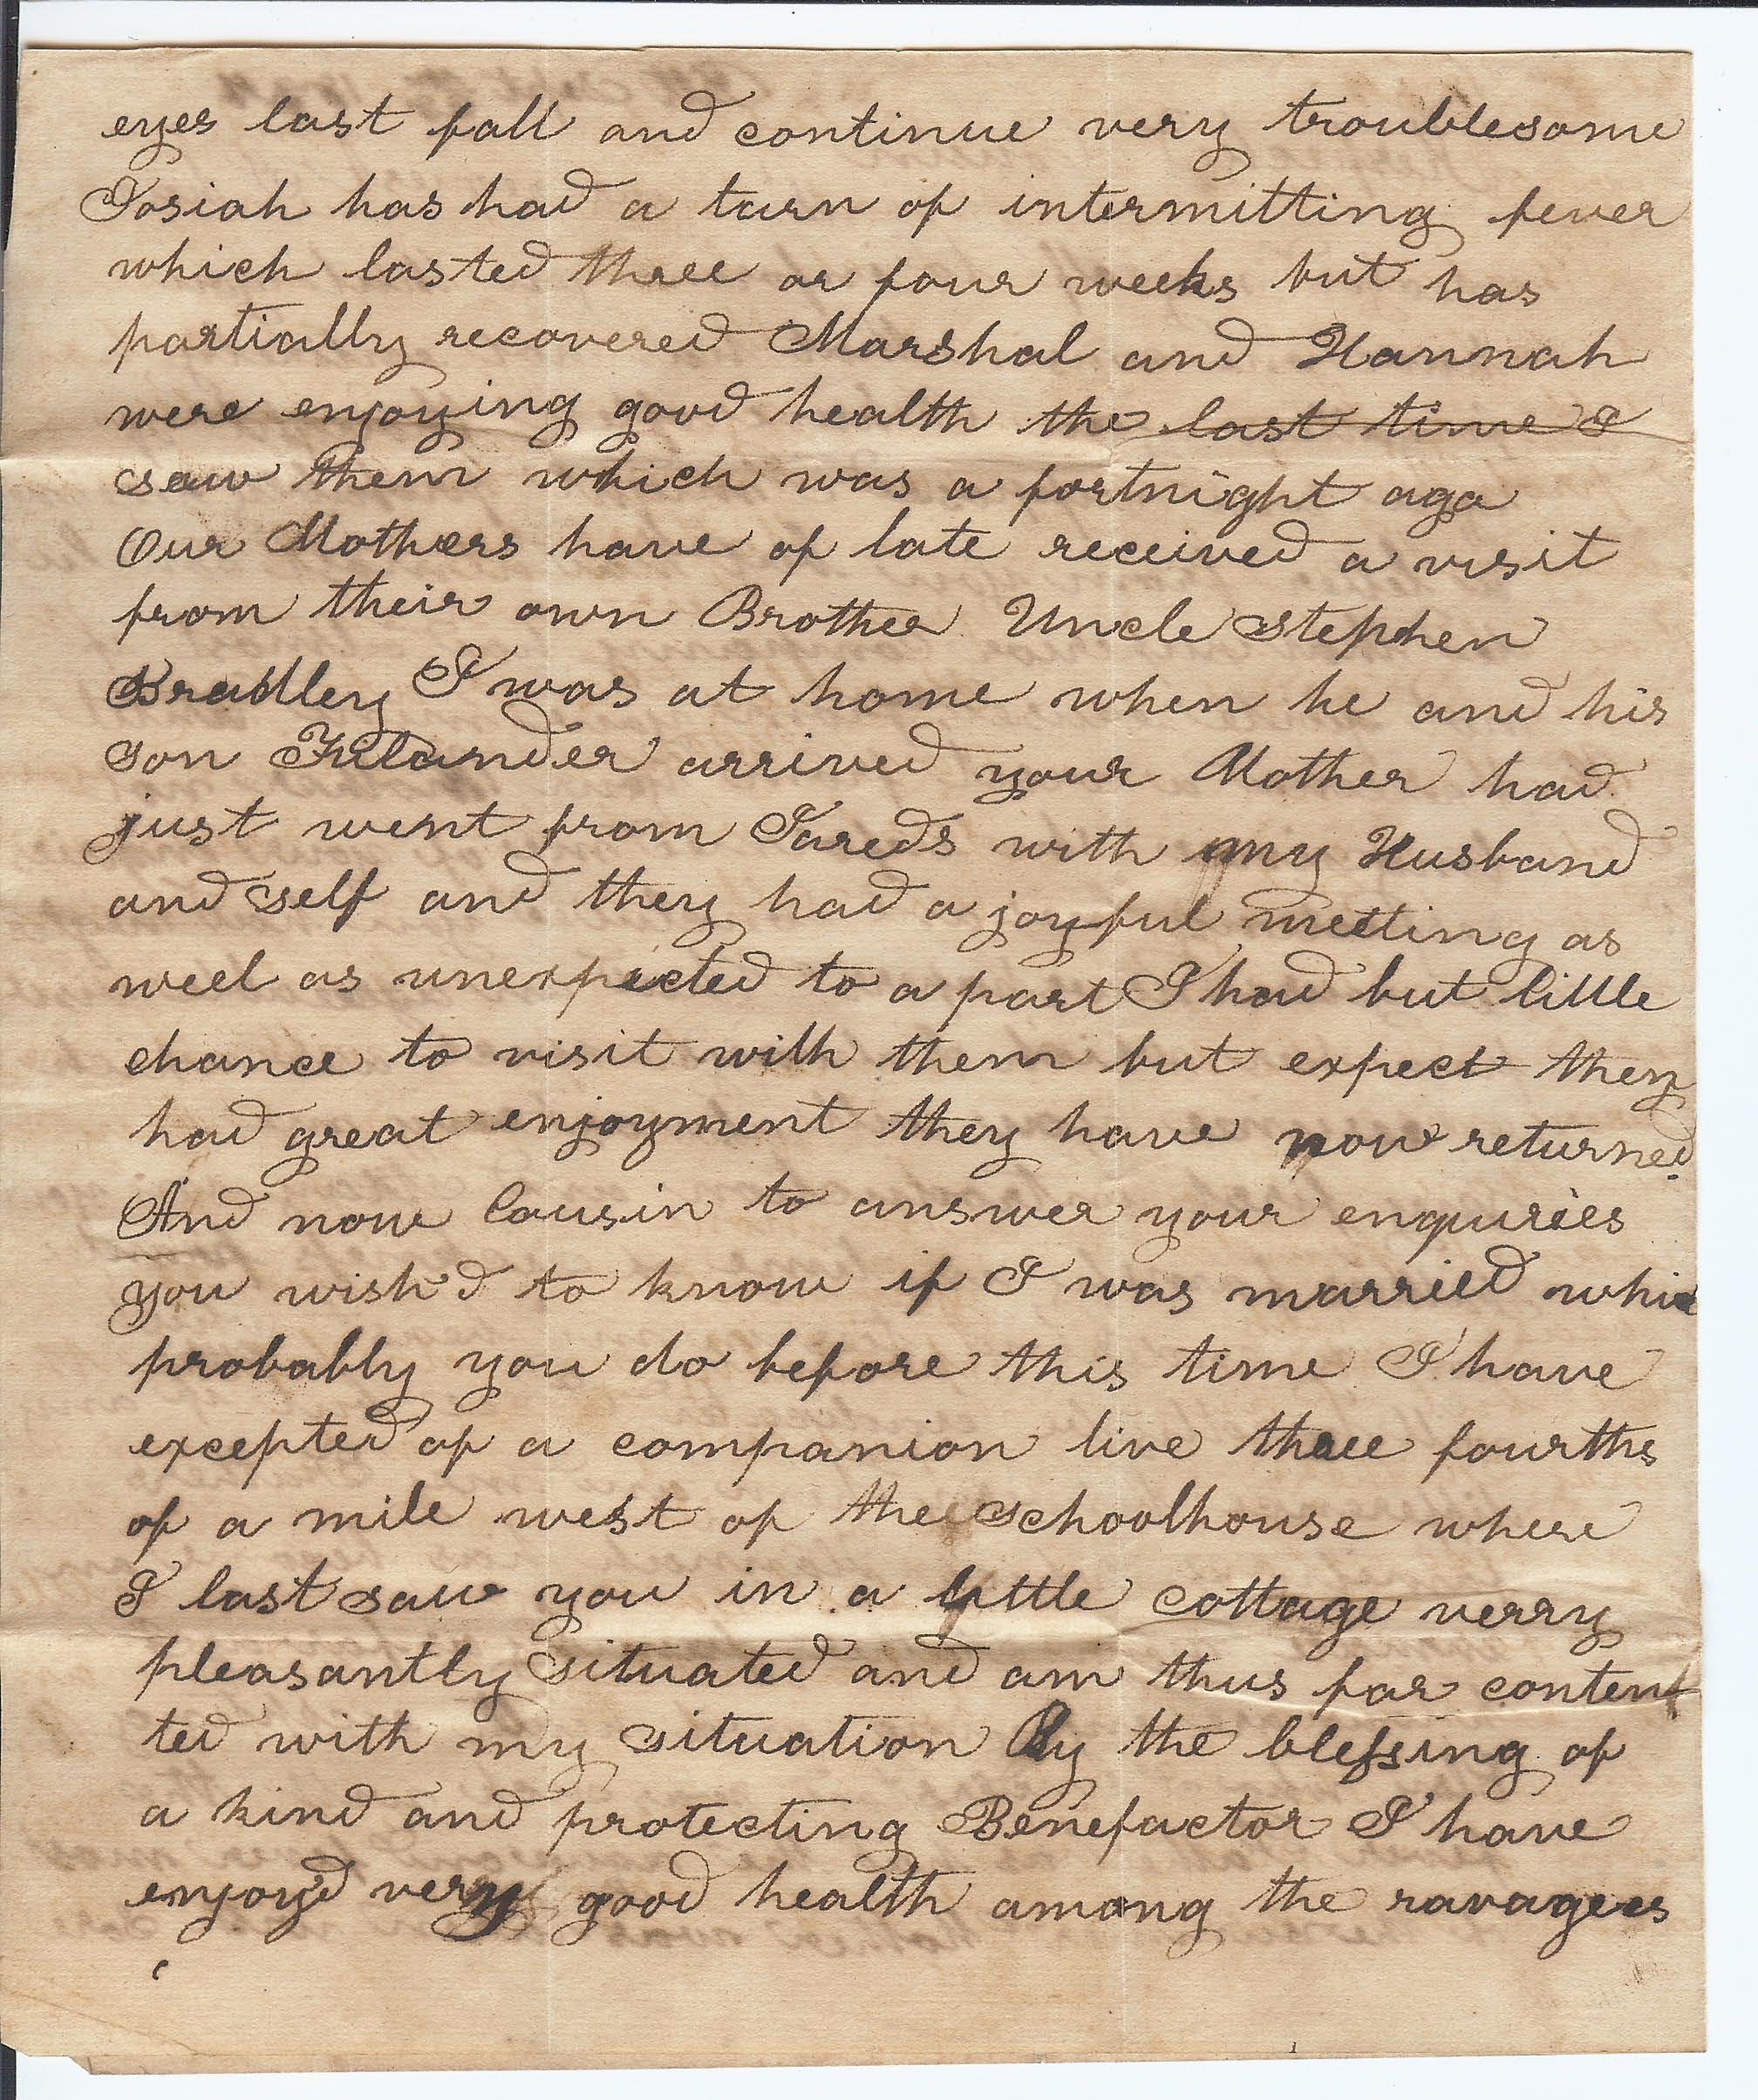 eyes last fall and continue very troublesome
Josiah has had a turn of intermitting fever
which lasted three or four weeks but has
partially recovered Marshal and Hannah
were enjoying good health the last time I
saw them which was a fortnight ago
Our Mothers have of late received a visit
from their own Brother Uncle Stephen
Bradley I was at home when he and his
son Filander arrived your Mother had
just went from Jareds with my Husband
and self and they had a joyful meeting as
well as unexpected to a part I had but little
chance to visit with them but expect they
had great enjoyment they have now returned.
And now Cousin to answer your enquries
you wish'd to know if I was married whic
probably you do before this time I have
excepted of a companion live three fourths
of a mile west of the schoolhouse where
I last saw you in a little cottage verry
pleasantly situated and am thus far conten
ted with my situation By the blessing of
a kind and protecting Benefactor I have
enjoy'd very good health among the ravages